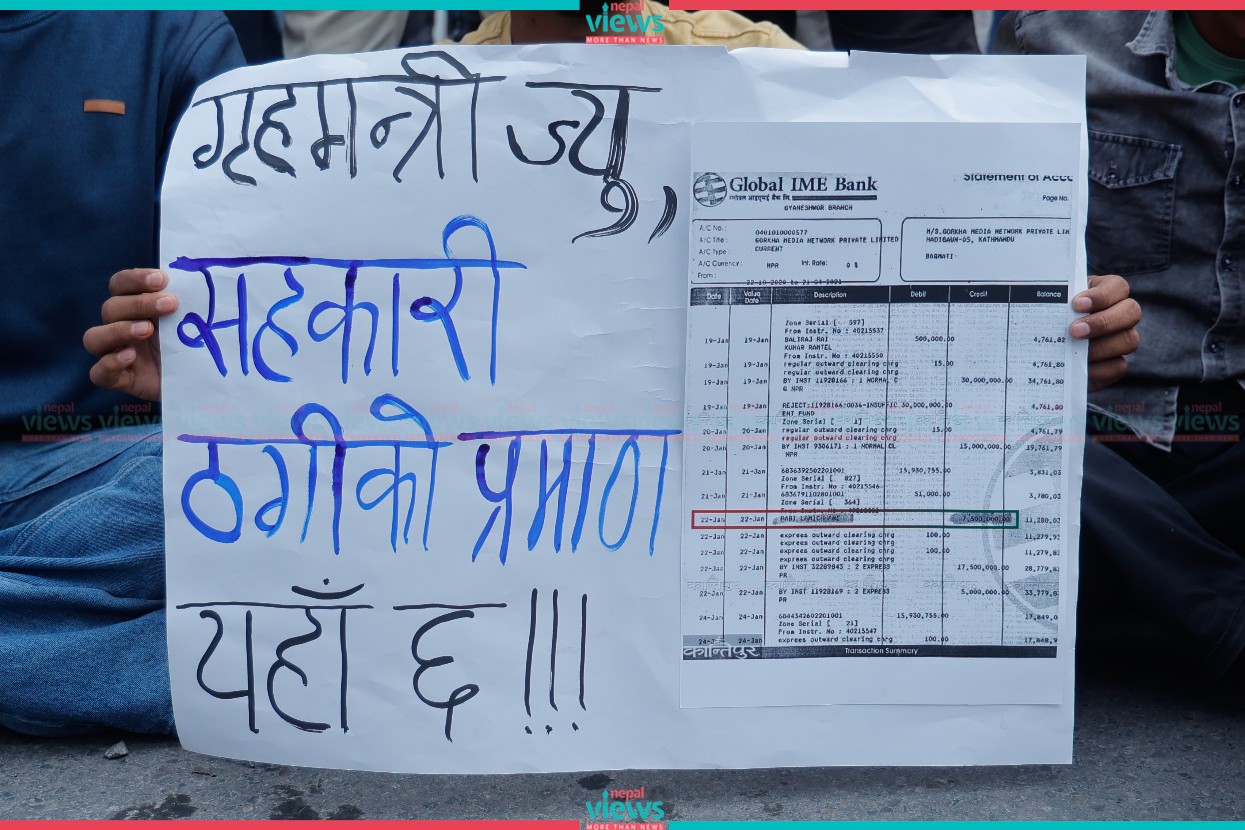 nepal
views
MORE THAN NEWS
गृहमन्त्री ज्यु,
सहकारी
ठगीको प्रमाण
यहाँ छ !!!
Global IME Bank
ग्लोबल आइएमई बैंक लि.
GYANESHWOR BRANCH
Statement of Acco
Page No.
A/C No.: 0401010000577
A/C Title: GORKHA MEDIA NETWORK PRIVATE LIMITED
A/C Type: CURRENT
A/C Currency: NPR Int. Rate: 0 %
From: 22-10-2020 to 21-04-2021
M/S.GORKHA MEDIA NETWORK PRIVATE LIM
NADIGAUN-05, KATHMANDU
BAGMATI
Date Value Date Description Debit Credit Balance
Zone Serial [ 597]
From Instr. No : 40215537
19-Jan 19-Jan BALIRAJ RAI 500,000.00 4,761,82
KUMAR RAMTEL
From Instr. No : 40215550
19-Jan 19-Jan regular outward clearing chrg 15.00 4,761,80
regular outward clearing chrg
19-Jan 19-Jan BY INST 11928166 : 1 NORMAL C 30,000,000.00 34,761,80
G NPR
19-Jan 19-Jan REJECT:11928166-0036-INSUFFIC 30,000,000.00 4,761,80
ENT FUND
Zone Serial [ 1]
20-Jan 20-Jan regular outward clearing chrg 15.00 4,761,79
regular outward clearing chrg
20-Jan 20-Jan BY INST 9306171 : 1 NORMAL CL 15,000,000.00 19,761,79
NPR
21-Jan 21-Jan 6836392502201001 15,930,755.00 3,831,03
Zone Serial [ 827]
From Instr. No : 40215546
21-Jan 21-Jan 6836791102801001 51,000.00 3,780,03
Zone Serial [ 364]
22-Jan 22-Jan RABI LAMICHHANE 7,500,000.00 11,280,03
22-Jan 22-Jan exprees outward clearing chrg 100.00 11,279,93
exprees outward clearing chrg
22-Jan 22-Jan exprees outward clearing chrg 100.00 11,279,83
exprees outward clearing chrg
22-Jan 22-Jan BY INST 32289843 : 2 EXPRESS 17,500,000.00 28,779,83
PR
22-Jan 22-Jan BY INST 11928169 : 2 EXPRESS 5,000,000.00 33,779,83
PR
24-Jan 24-Jan 6844342602201001 15,930,755.00 17,849,0
Zone Serial [ 21]
From Instr. No : 40215547
24-Jan 24-Jan exprees outward clearing chrg 100.00 17,848,9
कान्तिपुर
Transaction Summary
nepal
views
nepal
views
nepal
views
nepal
views
nepal
views
MORE THAN NEWS